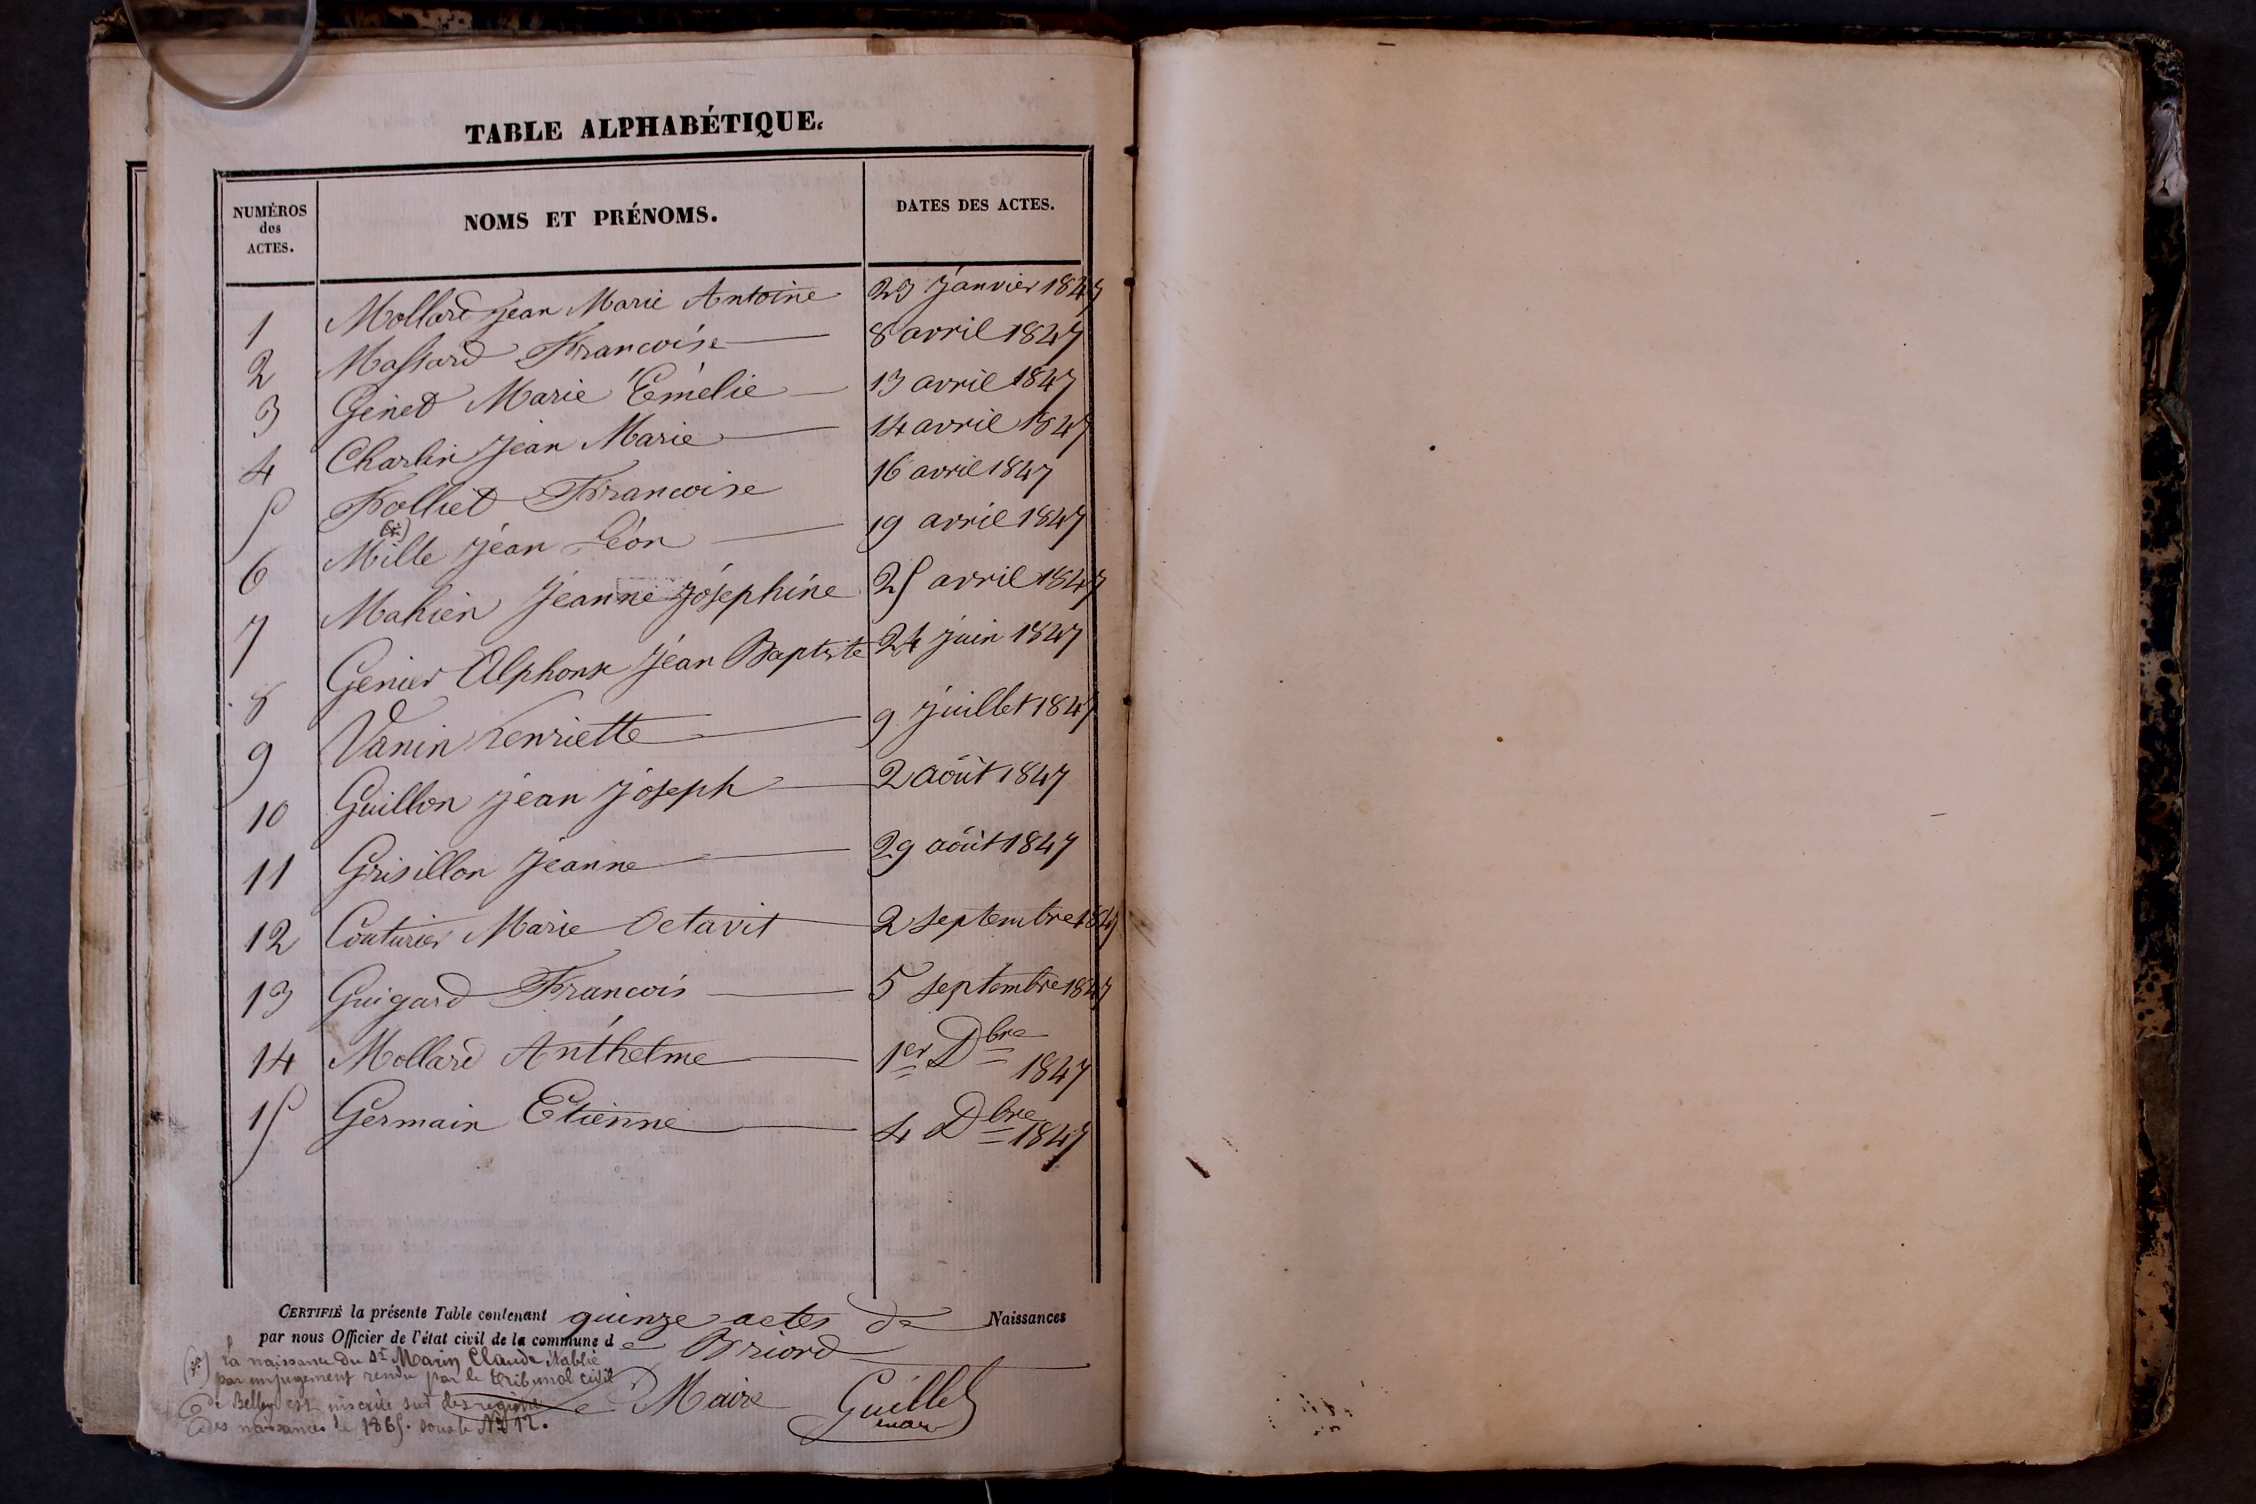 TABLE ALPHABÉTIQUE.
NUMÉROS des ACTES. NOMS ET PRÉNOMS. DATES DES ACTES.
1 Mollard jean Marie Antoine 23 janvier 1847
2 Massard Francoise 8 avril 1847
3 Genet Marie Émélie 13 avril 1847
4 Charlin jean Marie 14 avril 1847
5 Folliet Francoise 16 avril 1847
(*)
6 Mille jean Léon 19 avril 1847
7 Mahien jeanne joséphine 25 avril 1847
8 Genier Alphonse jean Baptiste 24 juin 1847
9 Vanin henriette 9 juillet 1847
10 Guillon jean joseph 2 août 1847
11 Grisillon jeanne 29 août 1847
12 Couturier Marie Octavit 2 septembre 1847
13 Guigard Francois 5 septembre 1847
14 Mollard Anthelme 1er Dbre 1847
15 Germain Etienne 4 Dbre 1847
CERTIFIÉ la présente Table contenant quinze actes de Naissances
par nous Officier de l'état civil de la commune de Briord
(*) la naissance du Sr Marin Claude établie
par un jugement rendu par le tribunal civil
de Belley est inscrite sur les registres
des naissances de 1865. sous le No 12.
Le Maire Guillet
maire